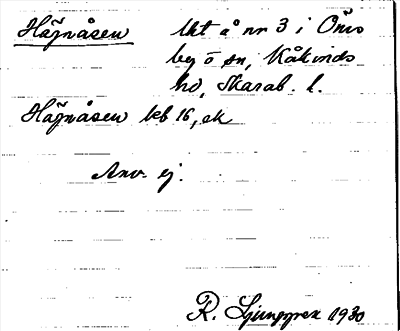 Häjnåsen lkt å nr 3 i Öms
by o sn, Kåkinds
hd, Skarab. l.
Häjnåsen kb 16, ek
Anv. ej.
R. Ljunggren 1930